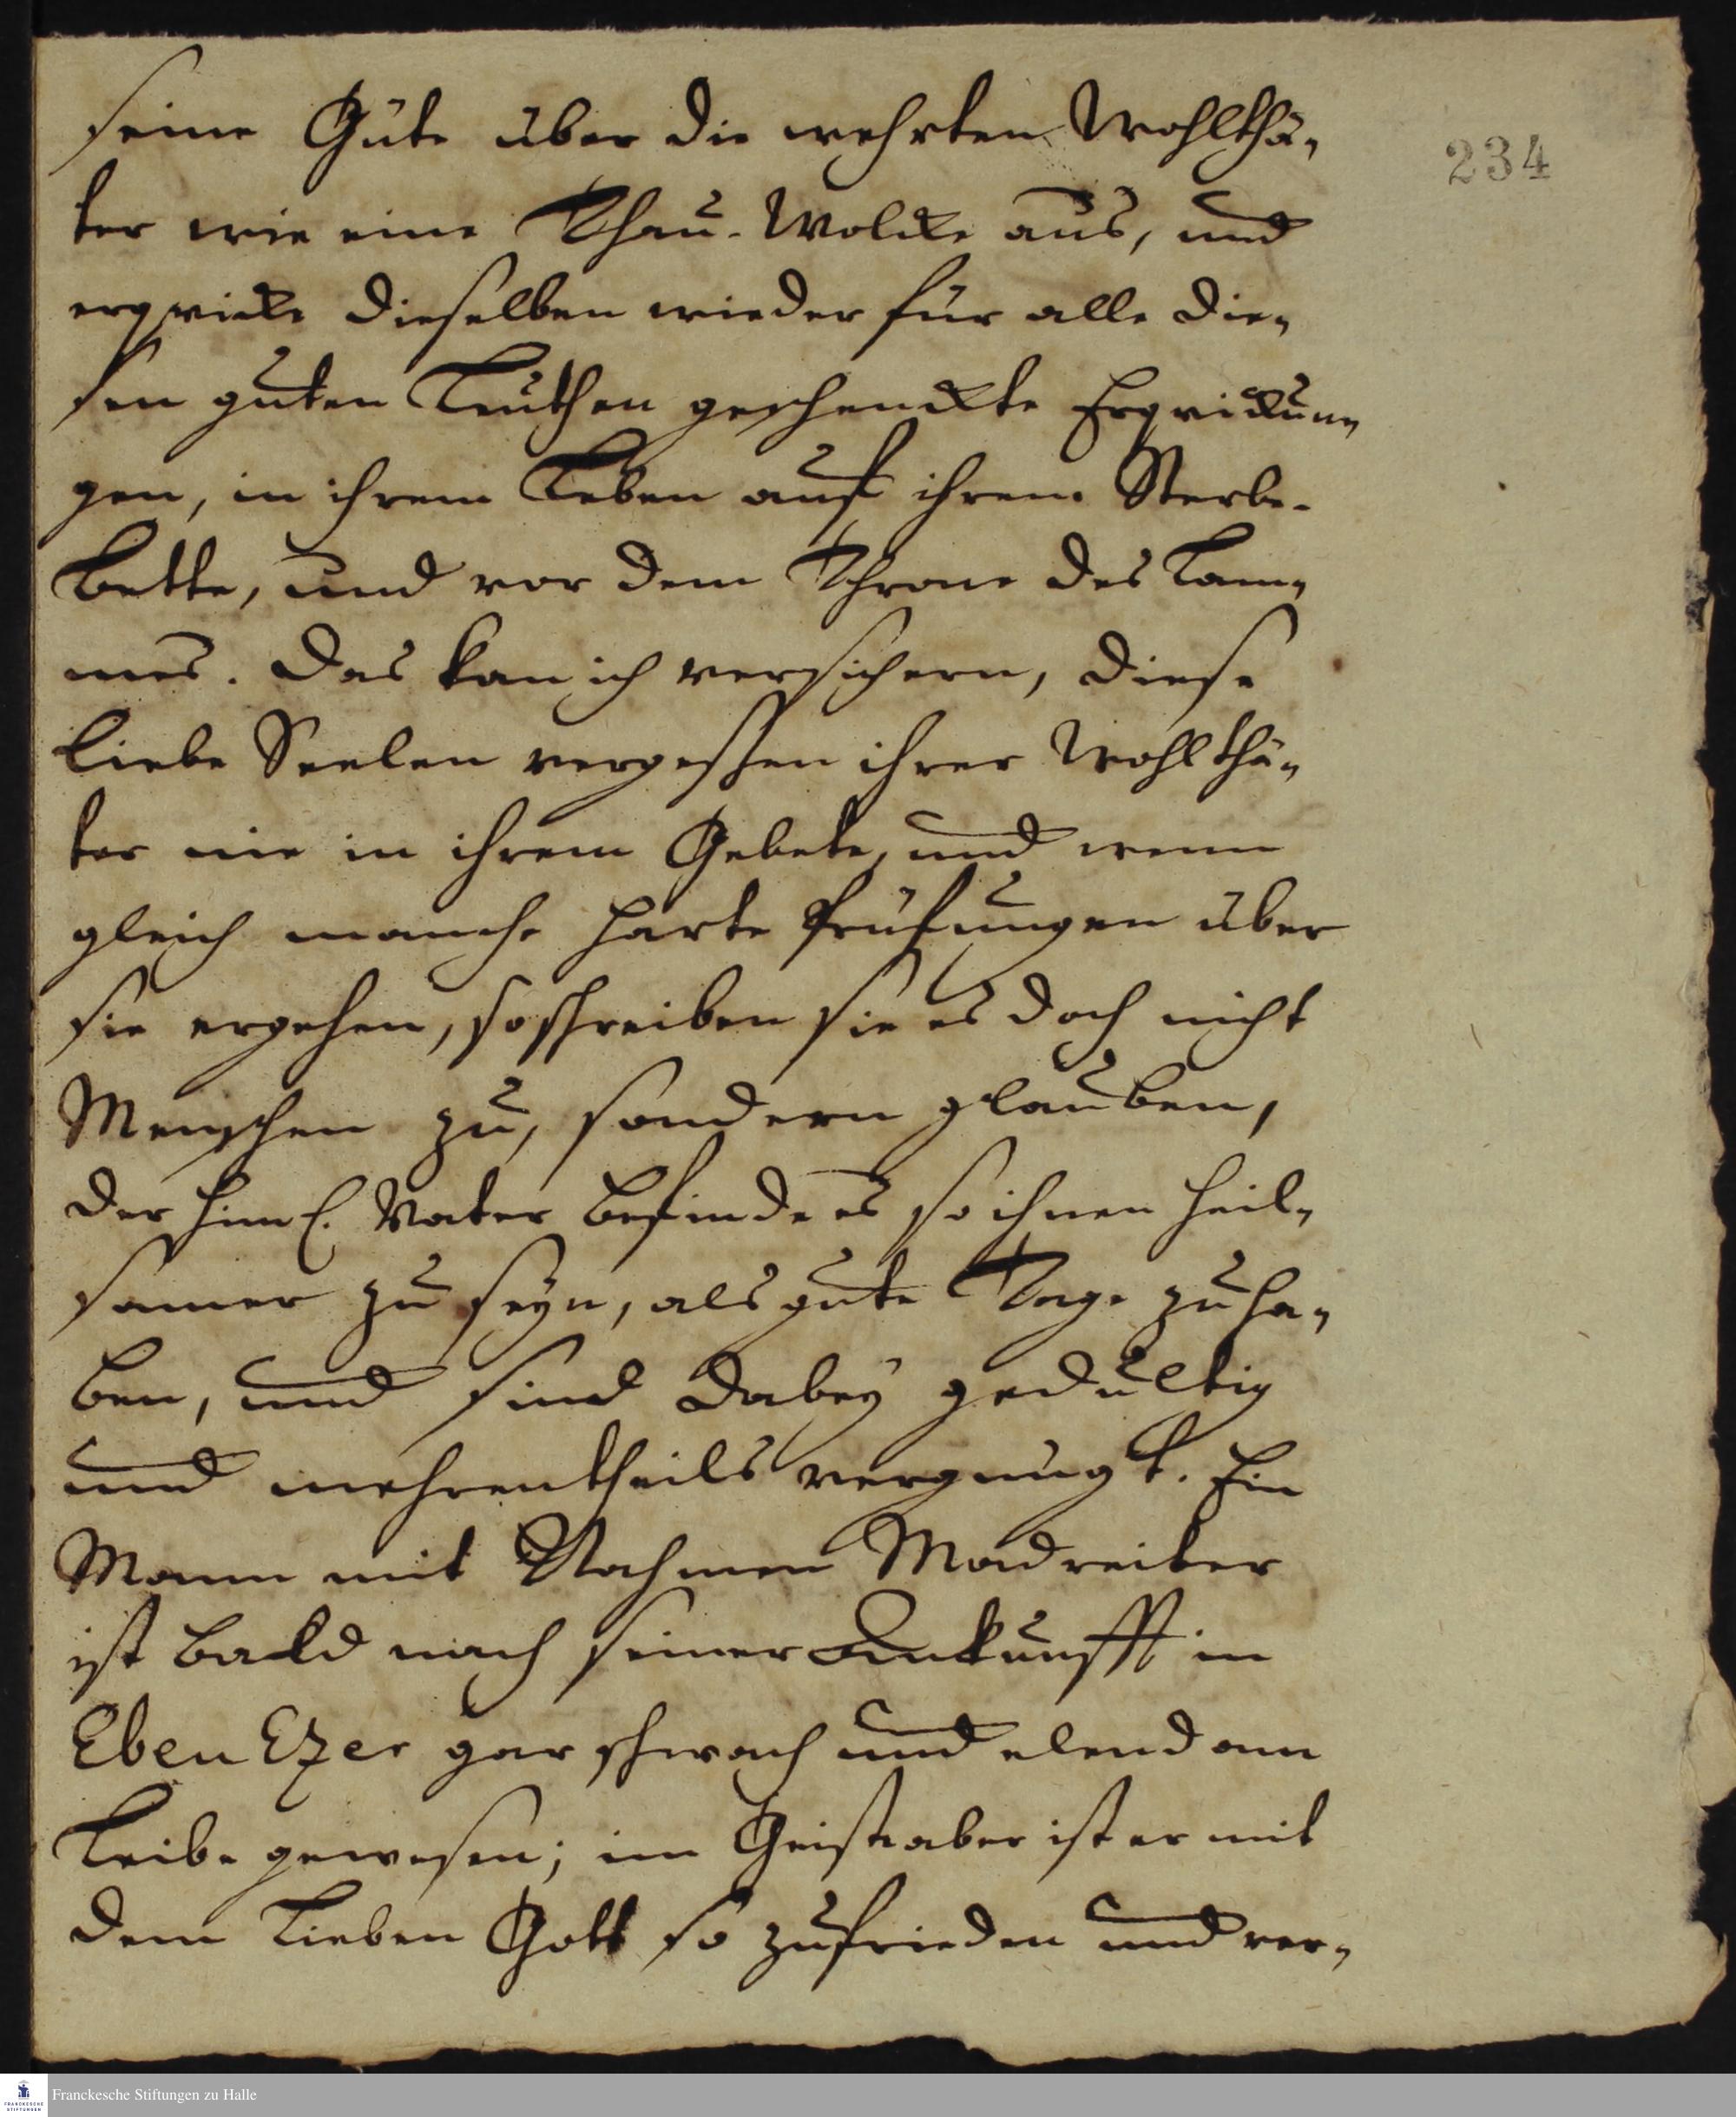 seine Güte über die wehrten Wohlthä-
ter wie eine Thau-Wolcke aus, und
erqvicke dieselben wieder für alle die-
sen guten Leuthen geschenckte Erqvickun-
gen, in ihrem Leben auf ihrem Sterbe-
bette, und vor dem Throne des Lam-
mes. Das kan ich versichern, diese
liebe Seelen vergessen ihrer Wohlthä-
ter nie in ihrem Gebete, und wenn
gleich manche harte Prüfungen über
sie ergehen, so schreiben sie es doch nicht
Menschen zu, sondern glauben,
der himl. Vater befinde es so ihnen heil-
samer zu seyn, als gute Tage zu ha-
ben, und sind dabey gedultig
und mehrentheils vergnugt. Ein
Mann mit Nahmen Madreiter
ist bald nach seiner Ankunfft in
EbenEzer gar schwach und elend am
Leibe gewesen; im Geist aber ist er mit
dem lieben Gott so zufrieden und ver-
234
Franckesche Stiftungen zu Halle
FRANCKESCHE
STIFTUNGEN